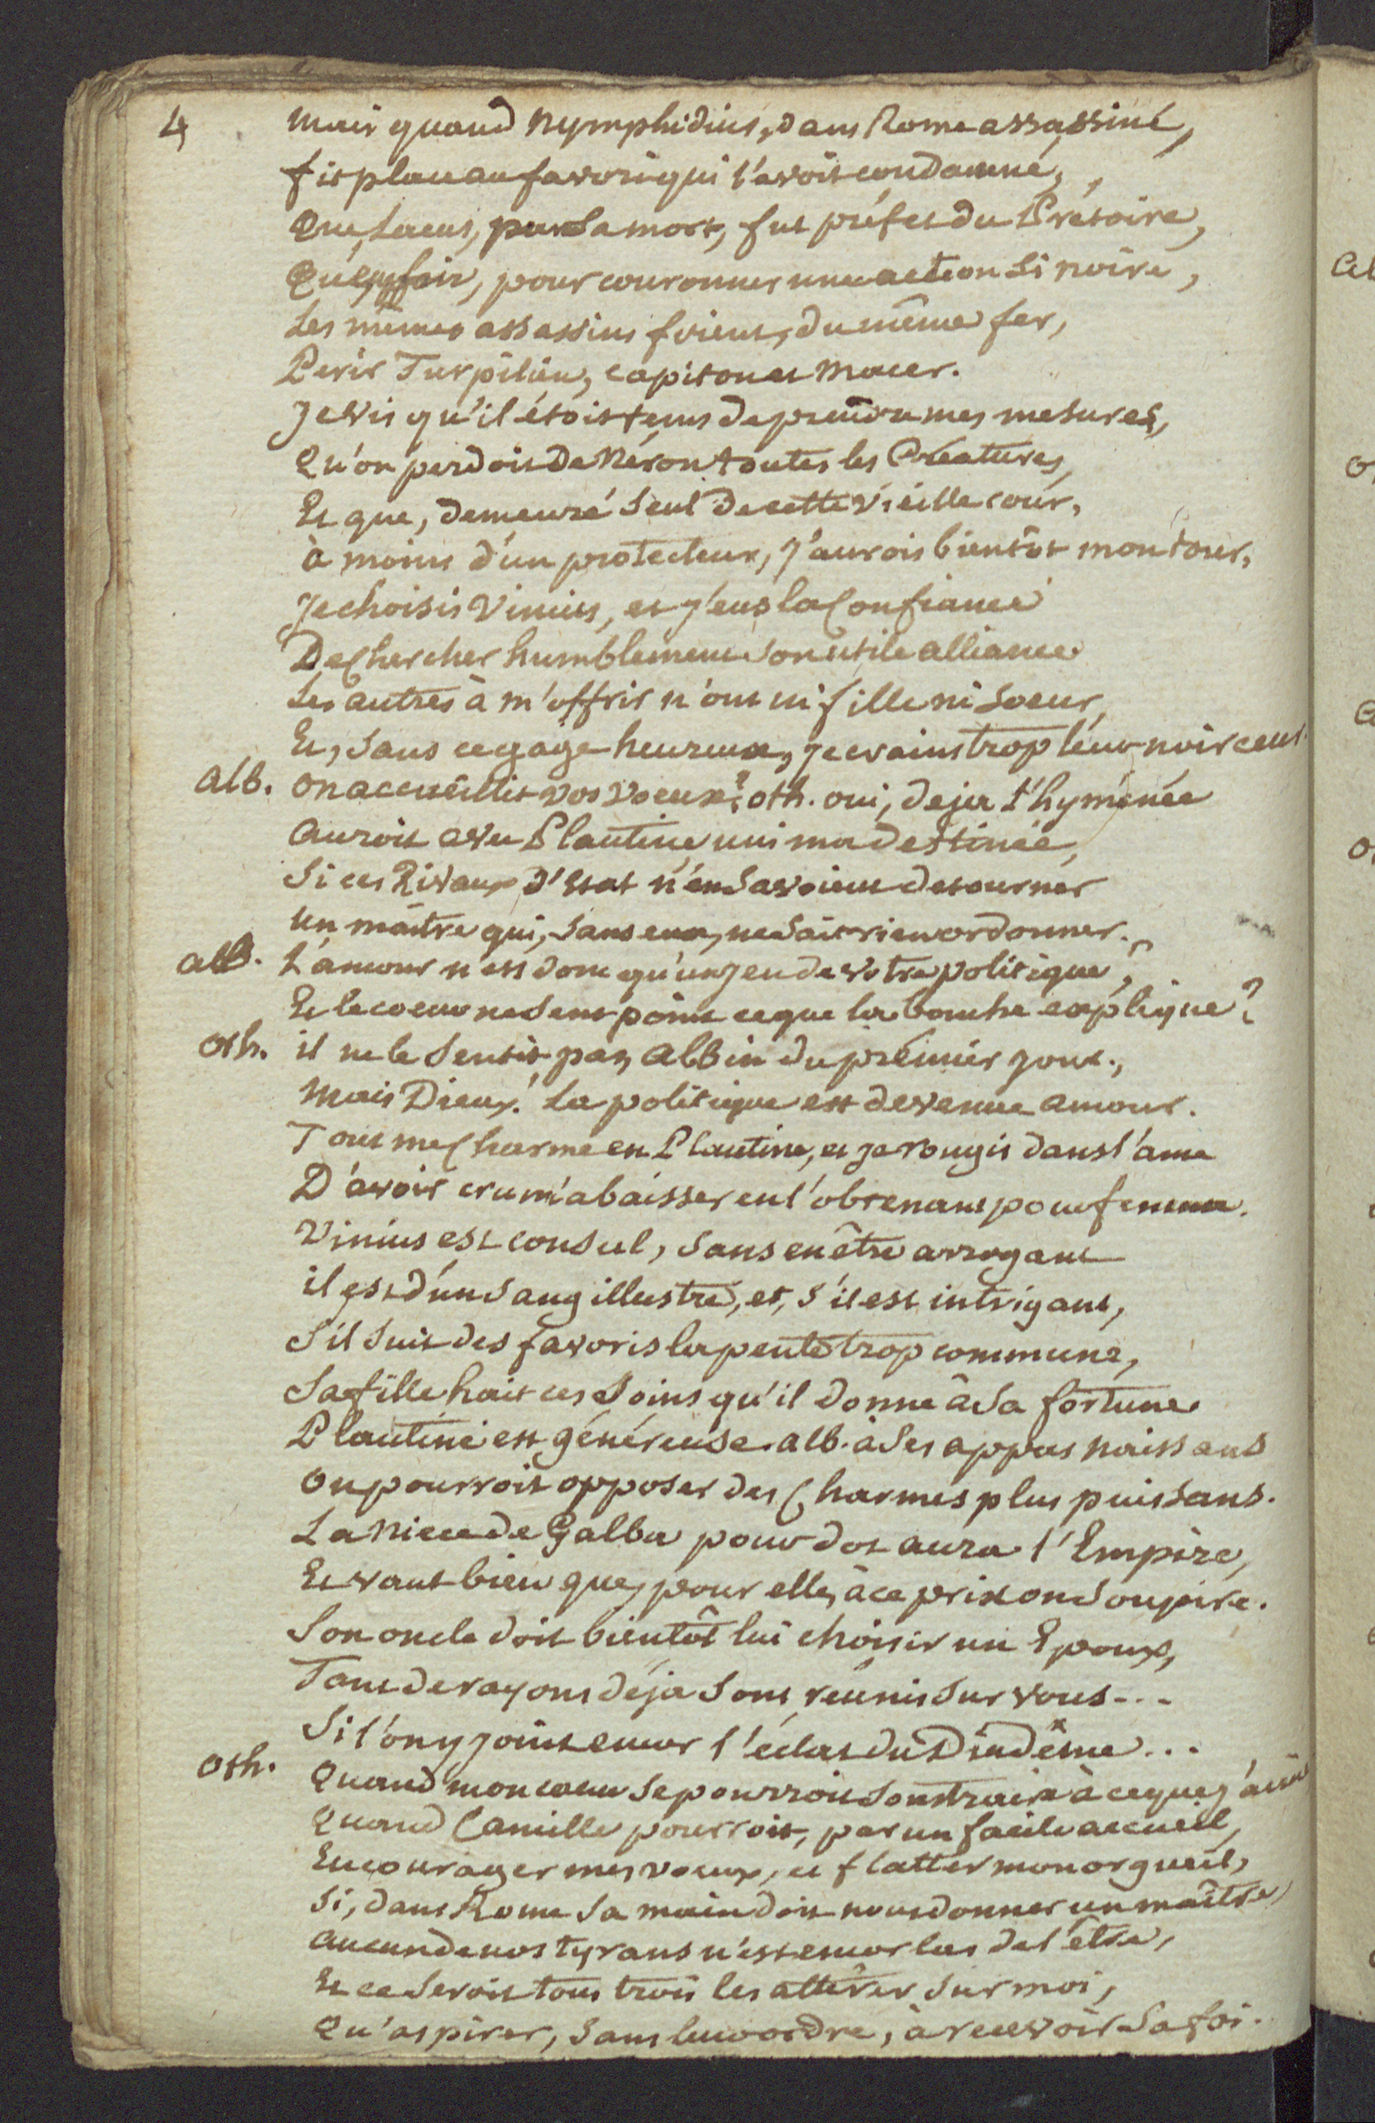 4
Mais quand Nymphidius, dans Rome assassiné,
fit place au favori qui l'avoit condamné,
Que Lacus, par sa mort, fut préfet du Prétoire,
Qu'enfin, pour couronner une action si noire,
Les mêmes assassins firent, du même fer,
Périr Turpilien, Capiton et Macer.
Je vis qu'il étoit tems de prendre mes mesures,
Qu'on perdoit de Néron toutes les Créatures,
Et que, demeuré seul de cette vieille cour,
à moins d'un protecteur, j'aurois bientôt mon tour,
Je choisis Vinius, et j'eus la Confiance
De Chercher humblement son utile alliance
Les autres à m'offrir n'ont ni fille ni soeur,
Et, sans ce gage heureux, je crains trop leur noirceur.
alb. on accueillit vos voeux? oth. oui, deja l'hyménée
auroit avec Plautine uni ma destinée,
Si ces Rivaux d'Etat n'en savoient detourner
un maître qui, sans eux, ne sait rien ordonner.
alb. L'amour n'est donc qu'un jeu de votre politique,?
Et le coeur ne sent point ce que la bouche explique?
oth. il ne le sentit pas, Albin du premier jour,
Mais Dieux! La politique est devenue amour.
Tout me Charme en Plautine, et je rougis dans l'ame
D'avoir cru m'abaisser en l'obtenant pour femme.
Vinius est consul, sans en être arrogant
il est d'un sang illustre, et, s'il est intrigant,
S'il suit des favoris la pente trop commune,
Sa fille hait ces soins qu'il donne à sa fortune
Plautine est généreuse. alb. à ses appas naissans
on pourroit opposer des Charmes plus puissans.
La Niece de Galba pour dot aura l'Empire,
Et vaut bien que, pour elle, à ce prix on soupire.
Son oncle doit bientôt lui choisir un Epoux,
Tant de rayons déja sont réunis sur vous...
Si l'on y joint encor l'éclat du Diadême...
oth. Quand mon coeur se pourroit soustraire à ce que j'aime
Quand Camille pourroit, par un facile accueil,
Encourager mes voeux, et flatter mon orgueil,
Si, dans Rome sa main doit nous donner un maître,
aucun de nos tyrans n'est encor las de l'être,
Et ce seroit tous trois les attirer sur moi,
Qu'aspirer, sans leur ordre, à recevoir sa foi.